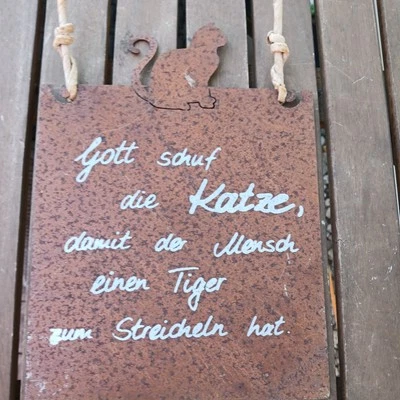 Gott schuf
die Katze,
damit der Mensch
einen Tiger
zum Streicheln hat.